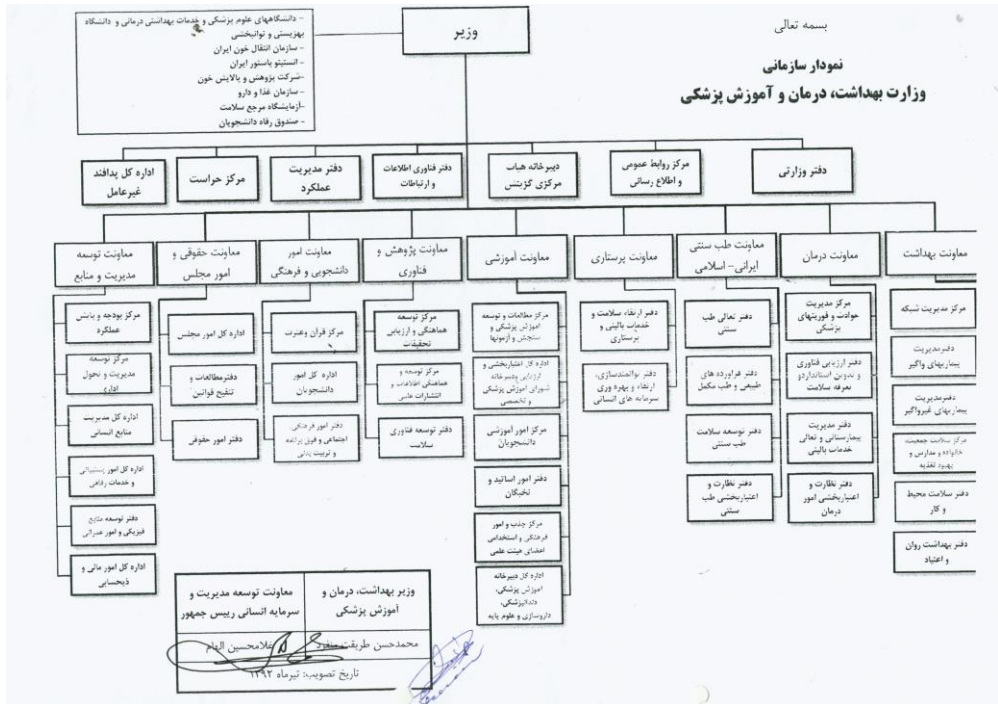 بسمه تعالی
نمودار سازمانی
وزارت بهداشت، درمان و آموزش پزشکی
وزیر
– دانشگاههای علوم پزشکی و خدمات بهداشتی درمانی و دانشگاه
بهزیستی و توانبخشی
– سازمان انتقال خون ایران
– انستیتو پاستور ایران
–شرکت پژوهش و پالایش خون
– سازمان غذا و دارو
–آزمایشگاه مرجع سلامت
– صندوق رفاه دانشجویان
دفتر وزارتی
مرکز روابط عمومی
و اطلاع رسانی
دبیرخانه هیات
مرکزی گزینش
دفتر فناوری اطلاعات
و ارتباطات
دفتر مدیریت
عملکرد
مرکز حراست
اداره کل پدافند
غیرعامل
معاونت بهداشت
معاونت درمان
معاونت طب سنتی
ایرانی– اسلامی
معاونت پرستاری
معاونت آموزشی
معاونت پژوهش و
فناوری
معاونت امور
دانشجویی و فرهنگی
معاونت حقوقی و
امور مجلس
معاونت توسعه
مدیریت و منابع
مرکز مدیریت شبکه
دفترمدیریت
بیماریهای واگیر
دفترمدیریت
بیماریهای غیرواگیر
مرکز سلامت جمعیت،
خانواده و مدارس و
بهبود تغذیه
دفتر سلامت محیط
و کار
دفتر بهداشت روان
و اعتیاد
مرکز مدیریت
حوادث و فوریتهای
پزشکی
دفتر ارزیابی فناوری
و تدوین استانداردو
تعرفه سلامت
دفتر مدیریت
بیمارستانی و تعالی
خدمات بالینی
دفتر نظارت و
اعتباربخشی امور
درمان
دفتر تعالی طب
سنتی
دفتر فراورده های
طبیعی و طب مکمل
دفتر توسعه سلامت
طب سنتی
دفتر نظارت و
اعتباربخشی طب
سنتی
دفتر ارتقاء سلامت و
خدمات بالینی و
پرستاری
دفتر توانمندسازی،
ارتقاء و بهره وری
سرمایه های انسانی
مرکز مطالعات و توسعه
آموزش پزشکی و
سنجش و آزمونها
اداره کل اعتباربخشی و
ارزیابی ودبیرخانه
شورای آموزش پزشکی
و تخصصی
مرکز امور آموزشی
دانشجویان
دفتر امور اساتید و
نخبگان
مرکز جذب و امور
فرهنگی و استخدامی
اعضای هیئت علمی
اداره کل دبیرخانه
آموزش پزشکی،
دندانپزشکی،
داروسازی و علوم پایه
مرکز توسعه
هماهنگی و ارزیابی
تحقیقات
مرکز توسعه و
هماهنگی اطلاعات و
انتشارات علمی
دفتر توسعه فناوری
سلامت
مرکز قرآن وعترت
اداره کل امور
دانشجویان
دفتر امور فرهنگی
اجتماعی و فوق برنامه
و تربیت بدنی
اداره کل امور مجلس
دفترمطالعات و
تنقیح قوانین
دفتر امور حقوقی
مرکز بودجه و پایش
عملکرد
مرکز توسعه
مدیریت و تحول
اداری
اداره کل مدیریت
منابع انسانی
اداره کل امور پشتیبانی
و خدمات رفاهی
دفتر توسعه منابع
فیزیکی و امور عمرانی
اداره کل امور مالی و
ذیحسابی
وزیر بهداشت، درمان و
آموزش پزشکی
معاونت توسعه مدیریت و
سرمایه انسانی رییس جمهور
محمدحسن طریقت منفرد
غلامحسین الهام
تاریخ تصویب: تیرماه ۱۳۹۲